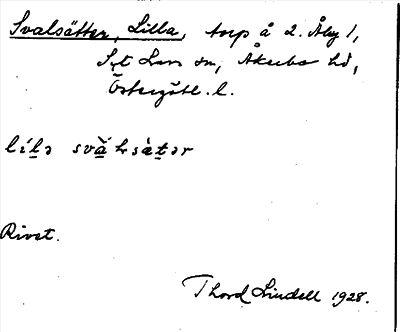 Svalsätter, Lilla, torp å 2. Åby 1,
S:t Lars sn, Åkerbo hd,
Östergötl. l.
lílə svàlsàtər
Rivet.
Thord Lindell 1928.